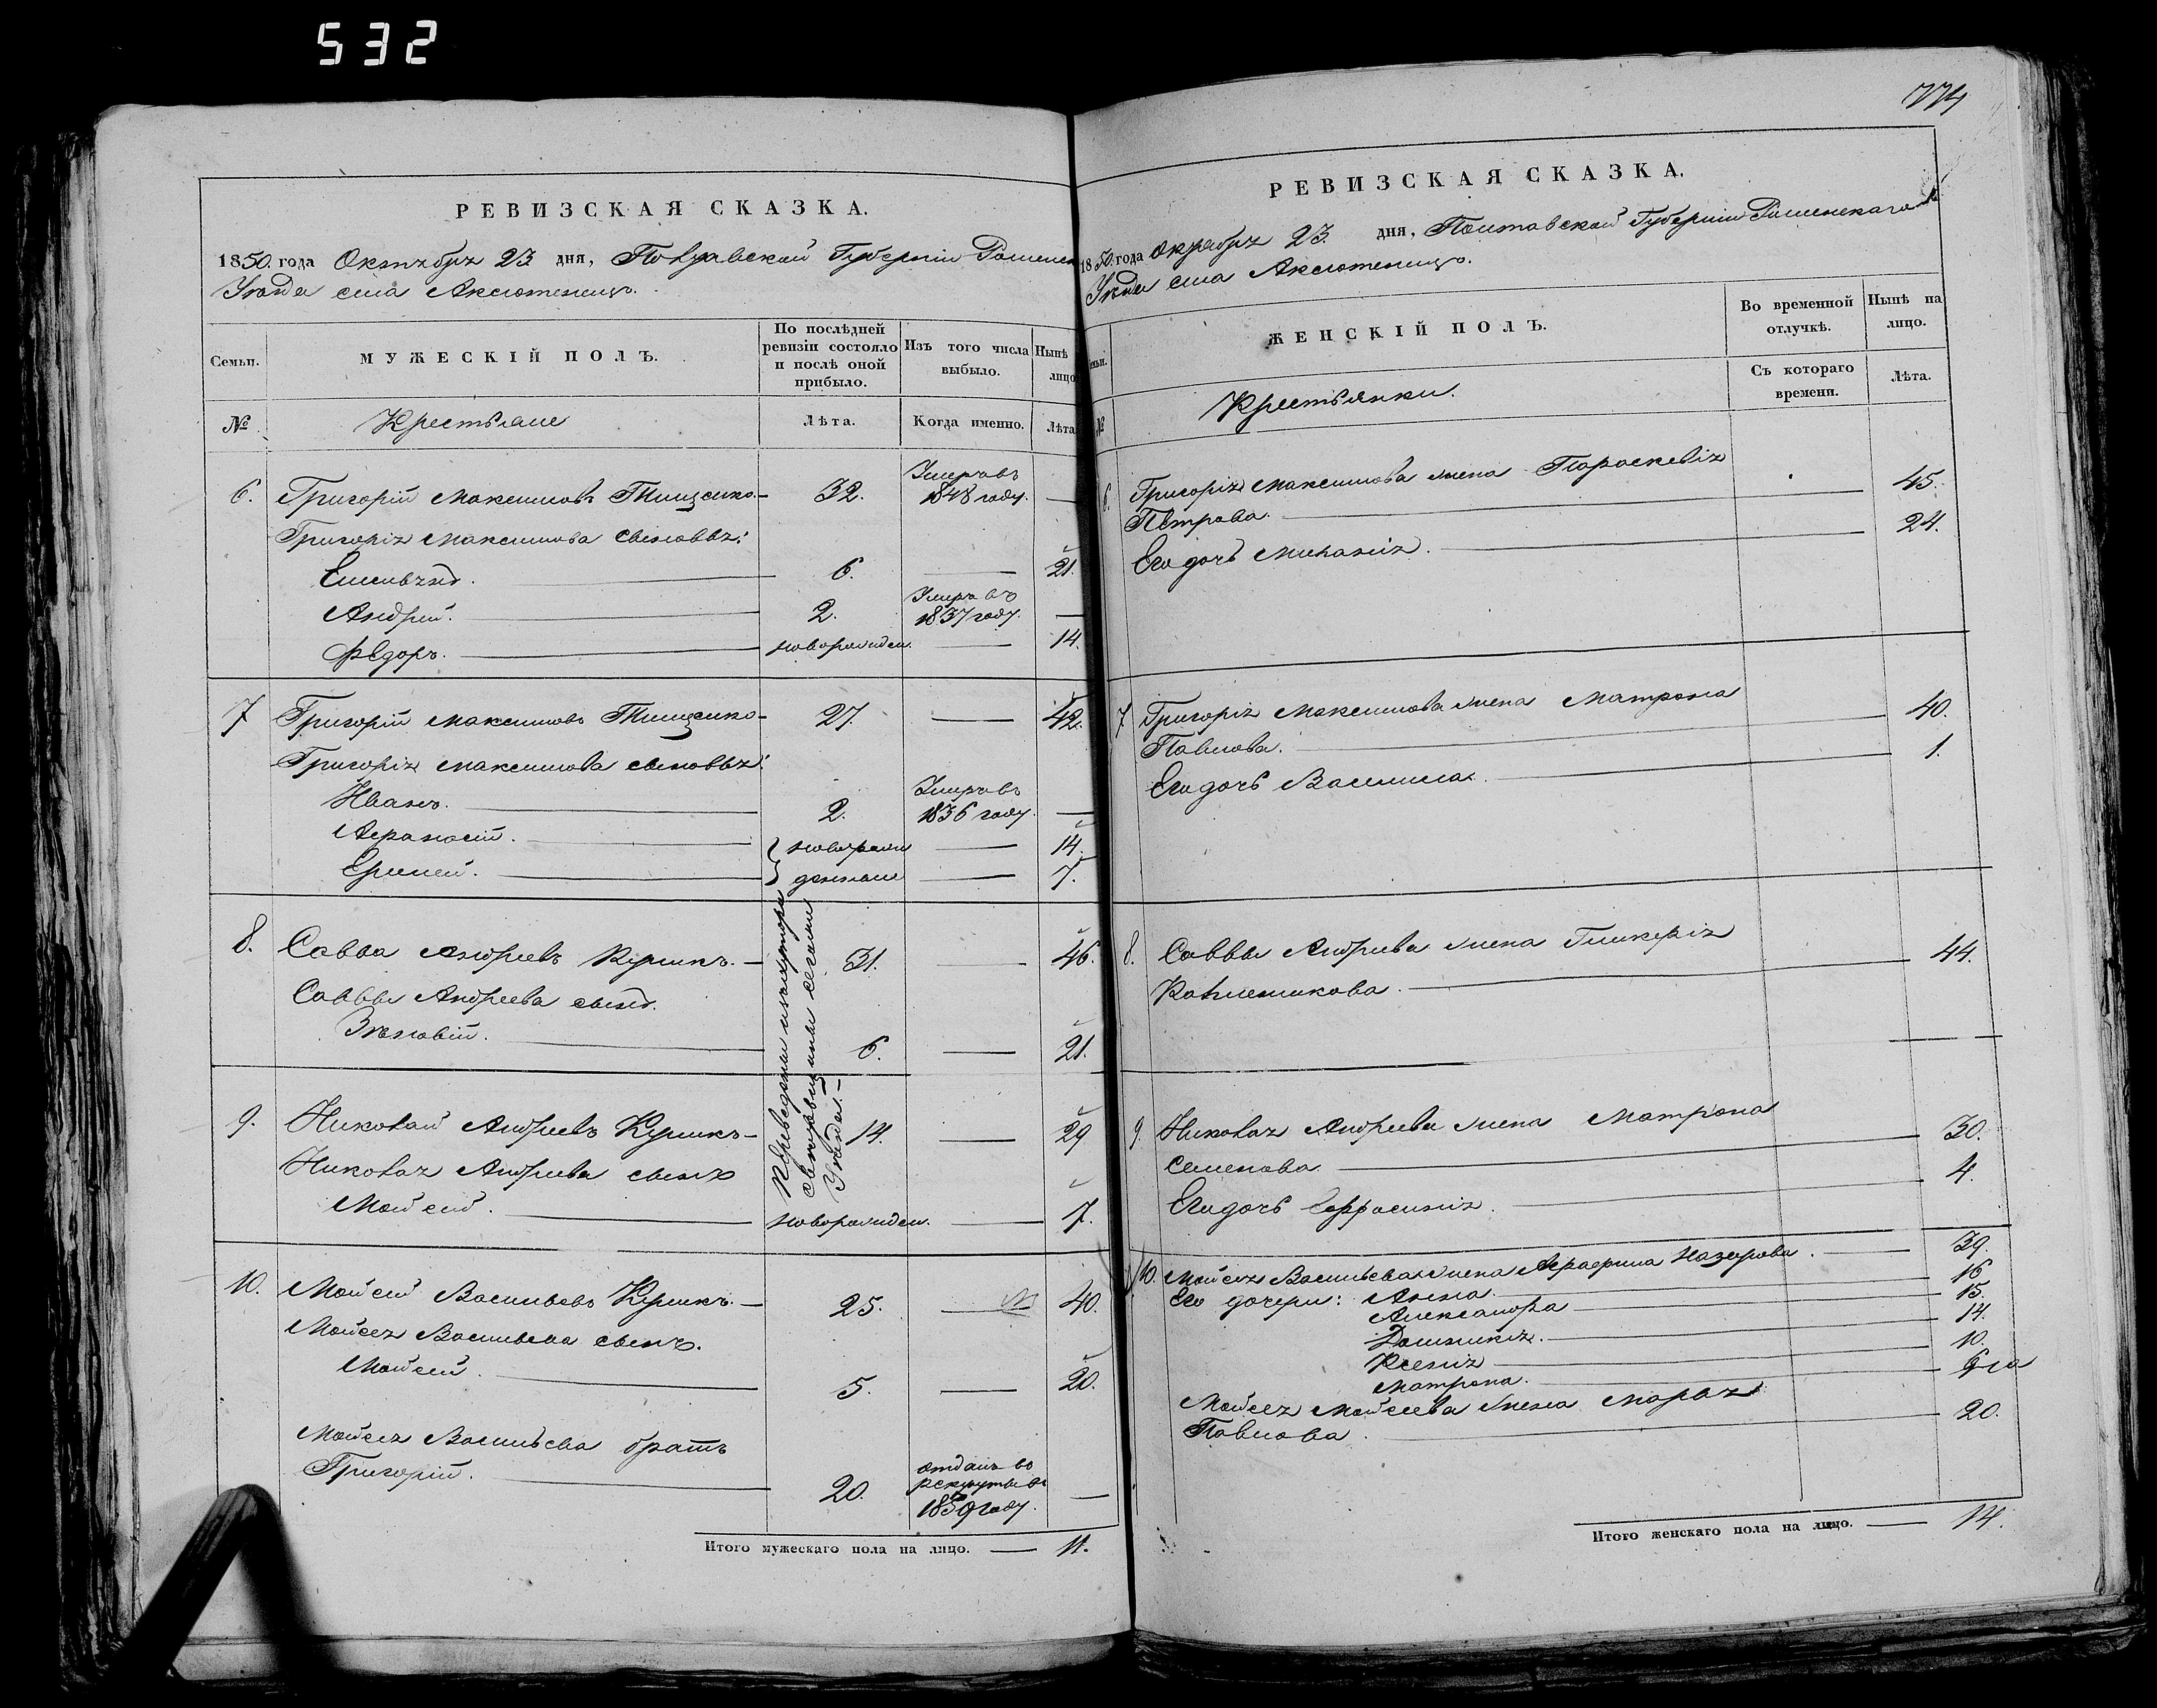 532
774
РЕВИЗСКАЯ СКАЗКА.
1850. года Октября 23 дня, Полтавской Губернiи Роменска
Уѣзда села Аксютенецъ.
Семьи.
МУЖЕСКIЙ ПОЛЪ.
По послѣдней ревизiи состояло и послѣ оной прибыло.
Изъ того числа выбыло.
Нынѣ лицо
№
Крестьяне
Лѣта.
Когда именно.
Лѣта
6. Григорiй Максимовъ Тищенко. — 32. Умеръ въ 1848 году. —
Григорiя Максимова сыновья:
Емельянъ. 6. — 21.
Андрей. 2. Умеръ въ 1837 году. —
Ѳедоръ. новорожден. — 14.
7 Григорiй Максимовъ Тищенко — 27. — 42.
Григорiя Максимова сыновья:
Иванъ. 2. Умеръ въ 1836 году. —
Афанасiй. новорож — 14.
Еремей. денные — 7.
8. Савва Андреевъ Курикъ. — 31. — 46.
Саввы Андреева сынъ.
Зѣновiй. 6. — 21.
Переведены изъ
Уѣзда. —
9. Николай Андреевъ Курикъ — 14. — 29
Николая Андреева сынъ
Мойсей. новорожден. — 7.
10. Мойсей Васильевъ Курикъ. — 25. — 40.
Мойсея Васильева сынъ.
Мойсей. 5. — 20.
Мойсея Васильева братъ
Григорiй. 20. отданъ въ рекруты въ 1839 году. —
Итого мужескаго пола на лицо. — 11.
РЕВИЗСКАЯ СКАЗКА.
1850. года Октября 23. дня, Полтавской Губернiи Роменскаго
Уѣзда села Аксютенецъ.
ЖЕНСКIЙ ПОЛЪ.
Во временной отлучкѣ.
Нынѣ на лицо.
Съ котораго времени.
Лѣта.
№
Крестьянки.
6. Григорiя Максимова жена Пораскевiя
Петрова. — 45.
Его дочь Миланiя. — 24.
7 Григорiя Максимова жена Матрона
Павлова. — 40.
Его дочь Василиса. — 1.
8. Саввы Андреева жена Гликерiя
— 44.
9. Николая Андреева жена Матрона
Семенова — 30.
Его дочь Ефросинiя. — 4.
10. Мойсея Васильева жена Аграфина Назарова. — 39.
Его дочери: Анна. — 16
Александра — 15.
Домникiя. — 14.
Ксенiя — 10.
Матрона. — 6
Мойсея Мойсеева жена Марья
Павлова. — 20.
Итого женскаго пола на лицо. — 14.